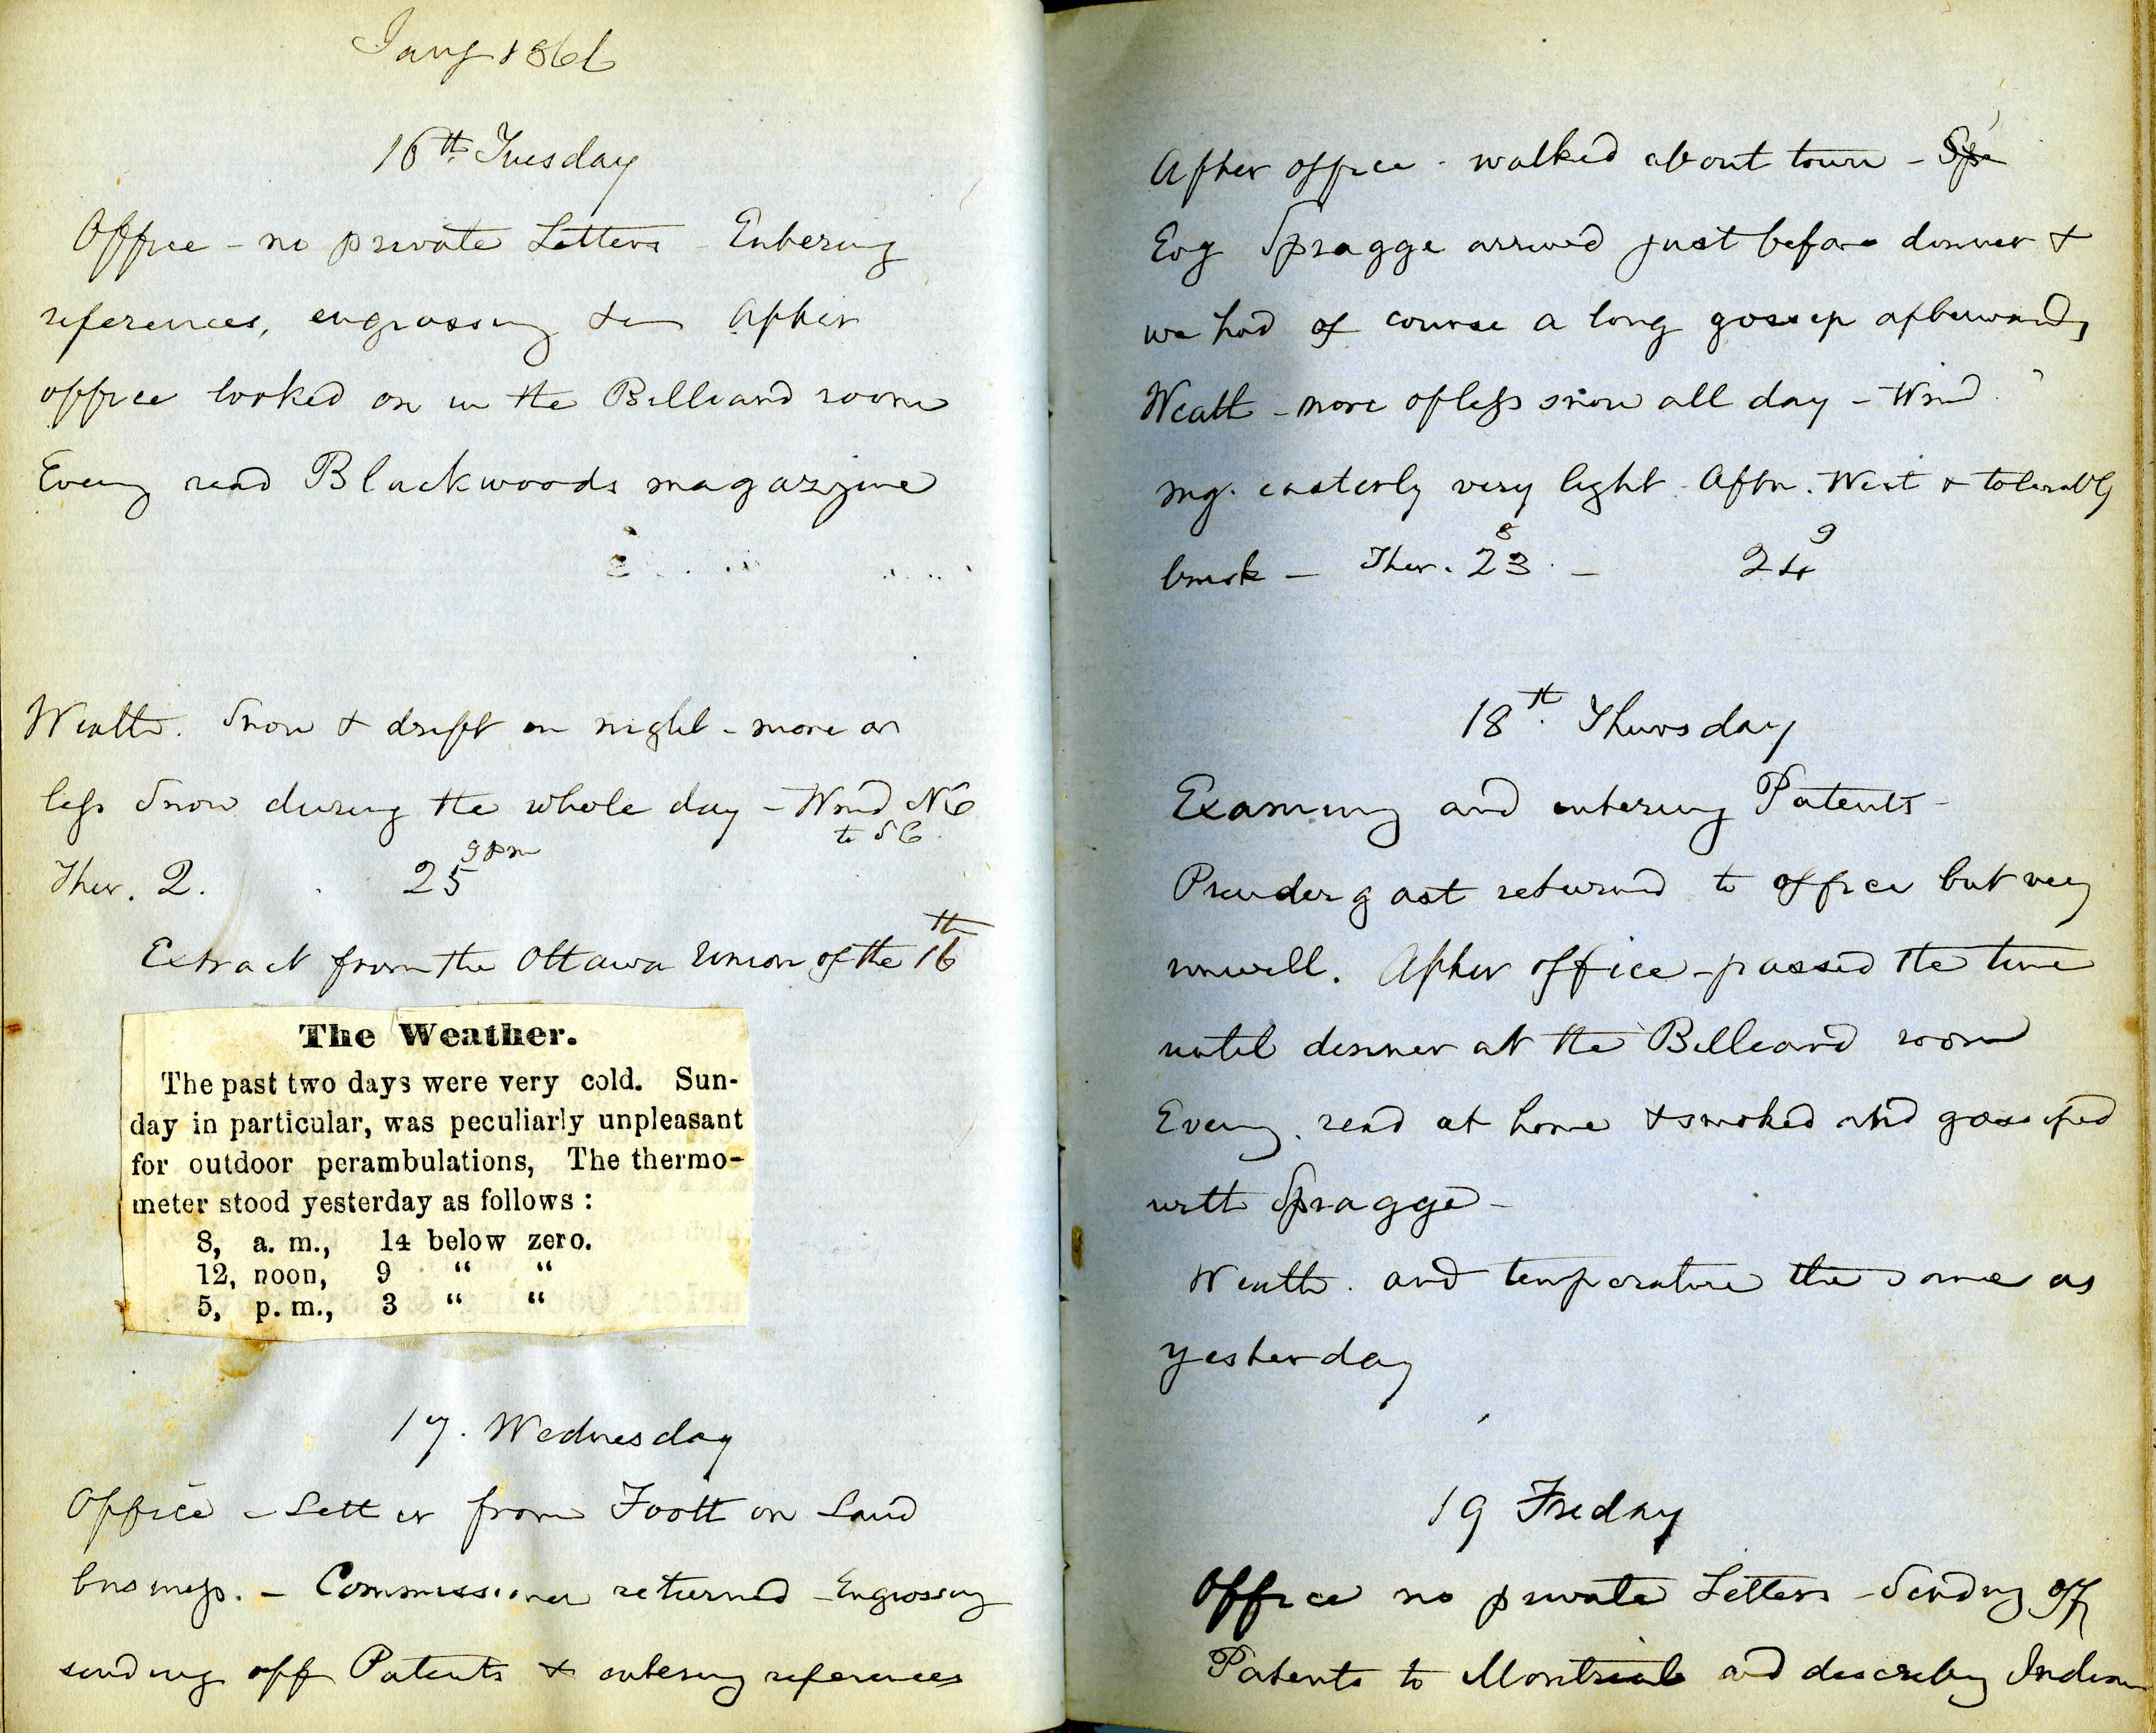 Jany 1866
16th Tuesday
Office - no private Letters - Entering
references, engrossing &c After
office looked on in the Billiard room
Eveng read Blackwoods magazine
Weath. Snow & drift in night - more or
less Snow during the whole day - Wind NE
to SE
9 pm
Ther. 2. 25
Extract from the Ottawa Union of the 16th
The Weather.
The past two days were very cold. Sun-
day in particular, was peculiarly unpleasant
for outdoor perambulations, The thermo-
meter stood yesterday as follows :
8, a. m., 14 below zero.
12, noon, 9 “ “
5, p. m., 3 “ “
17. Wednesday
Office - Letter from Foott on Land
business. - Commissioner returned - Engrossing
sending off Patents & entering references
After office - walked about town - Spr
Evg Spragge arrived just before dinner &
we had of course a long gossip afterwards
Weath - more or less snow all day - Wind
mg. easterly very light. Aftn. West & tolerably
8 9
brisk - Ther. 23 - 24
18th. Thursday
Examing and entering Patents -
Prendergast returned to office but very
unwell. After office - passed the time
until dinner at the Billiard room
Eveng. read at home & smoked and gossiped
with Spragge -
Weath. and temperature the same as
yesterday
19 Friday
Office no private Letters - Sending off
Patents to Montreal and describg Indian